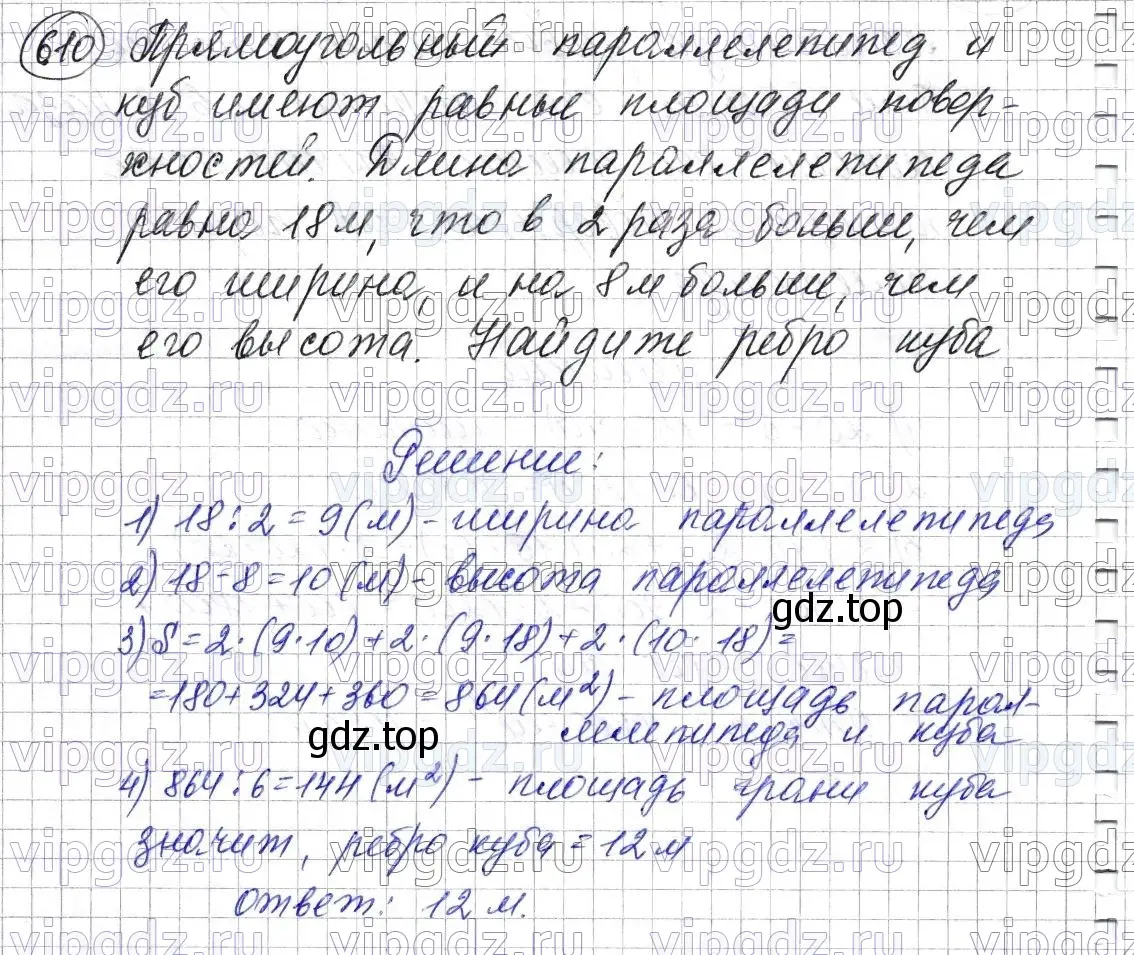 610 Прямоугольный параллелепипед и
куб имеют равные площади повер-
хностей. Длина параллелепипеда
равна 18 м, что в 2 раза больше, чем
его ширина, и на 8 м больше, чем
его высота. Найдите ребро куба
Решение:
1) 18 : 2 = 9 (м) - ширина параллелепипеда
2) 18 - 8 = 10 (м) - высота параллелепипеда
gdz.top
3) S = 2 · (9 · 10) + 2 · (9 · 18) + 2 · (10 · 18) =
= 180 + 324 + 360 = 864 (м²) - площадь парал-
лелепипеда и куба
gdz.top
4) 864 : 6 = 144 (м²) - площадь грани куба
значит, ребро куба = 12 м
ответ: 12 м.